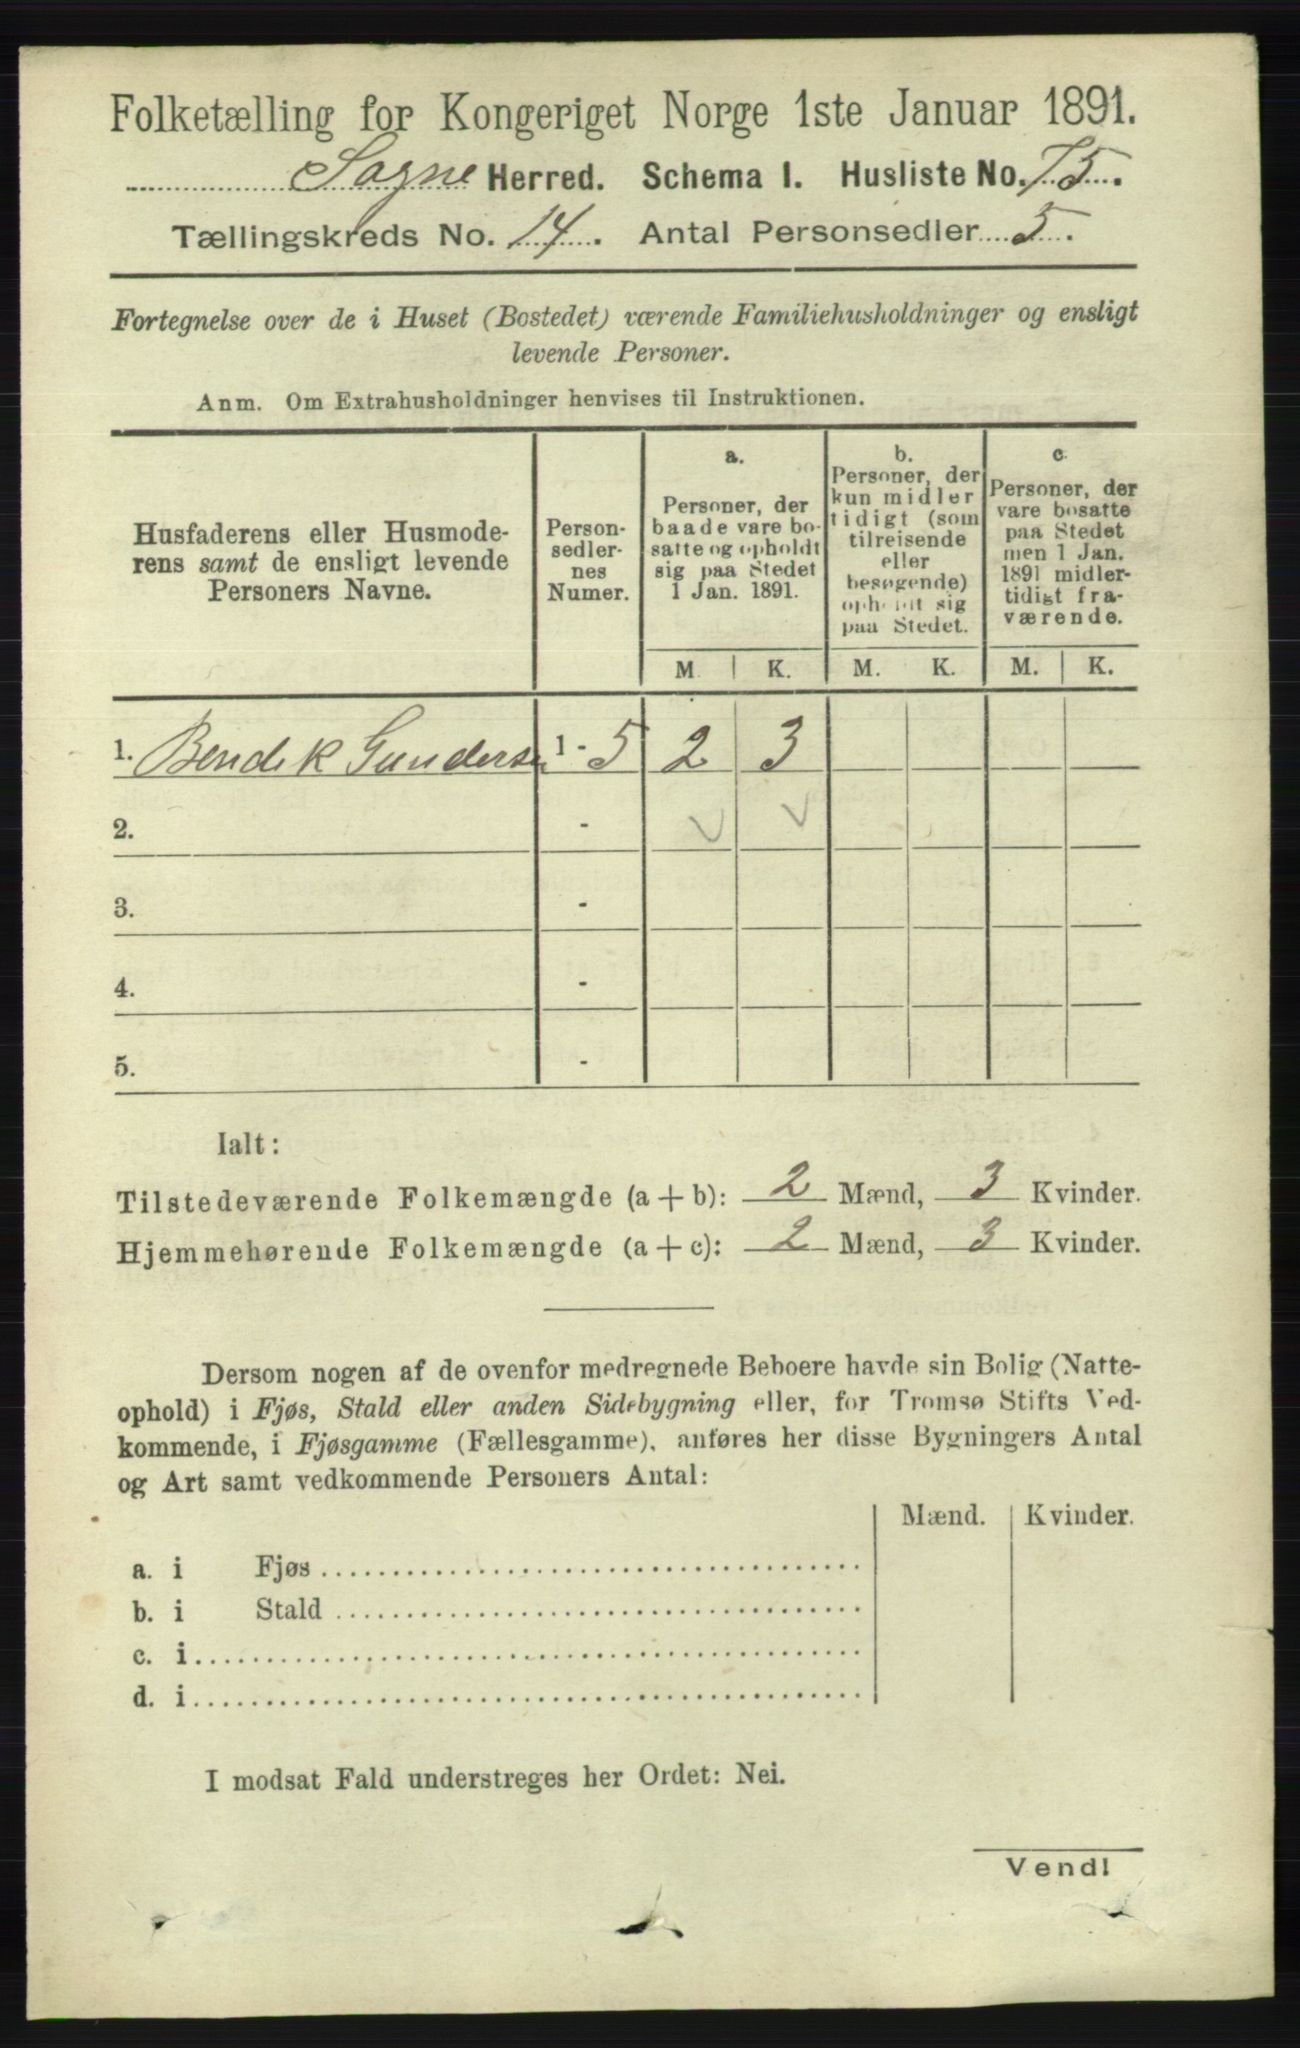 Folketælling for Kongeriget Norge 1ste Januar 1891.
Søgne Herred. Schema I. Husliste No. 75.
Tællingskreds No. 14. Antal Personsedler 5.
Fortegnelse over de i Huset (Bostedet) værende Familiehusholdninger og ensligt
levende Personer.
Anm. Om Extrahusholdninger henvises til Instruktionen.
Husfaderens eller Husmode-
rens samt de ensligt levende
Personers Navne.
Person-
sedler-
nes
Numer.
a.
Personer, der
baade vare bo-
satte og opholdt
sig paa Stedet
1 Jan. 1891.
b.
Personer, der
kun midler
tidigt (som
tilreisende
eller
besøgende)
opholdt sig
paa Stedet.
c.
Personer, der
vare bosatte
paa Stedet
men 1 Jan.
1891 midler-
tidigt fra-
værende.
M. K. M. K. M. K.
1. Bendik Gundersen 1 - 5 2 3
2. -
3. -
4. -
5. -
Ialt:
Tilstedeværende Folkemængde (a + b): 2 Mænd, 3 Kvinder.
Hjemmehørende Folkemængde (a + c): 2 Mænd, 3 Kvinder.
Dersom nogen af de ovenfor medregnede Beboere havde sin Bolig (Natte-
ophold) i Fjøs, Stald eller anden Sidebygning eller, for Tromsø Stifts Ved-
kommende, i Fjøsgamme (Fællesgamme), anføres her disse Bygningers Antal
og Art samt vedkommende Personers Antal:
Mænd. Kvinder.
a. i Fjøs
b. i Stald
c. i
d. i
I modsat Fald understreges her Ordet: Nei.
Vend!